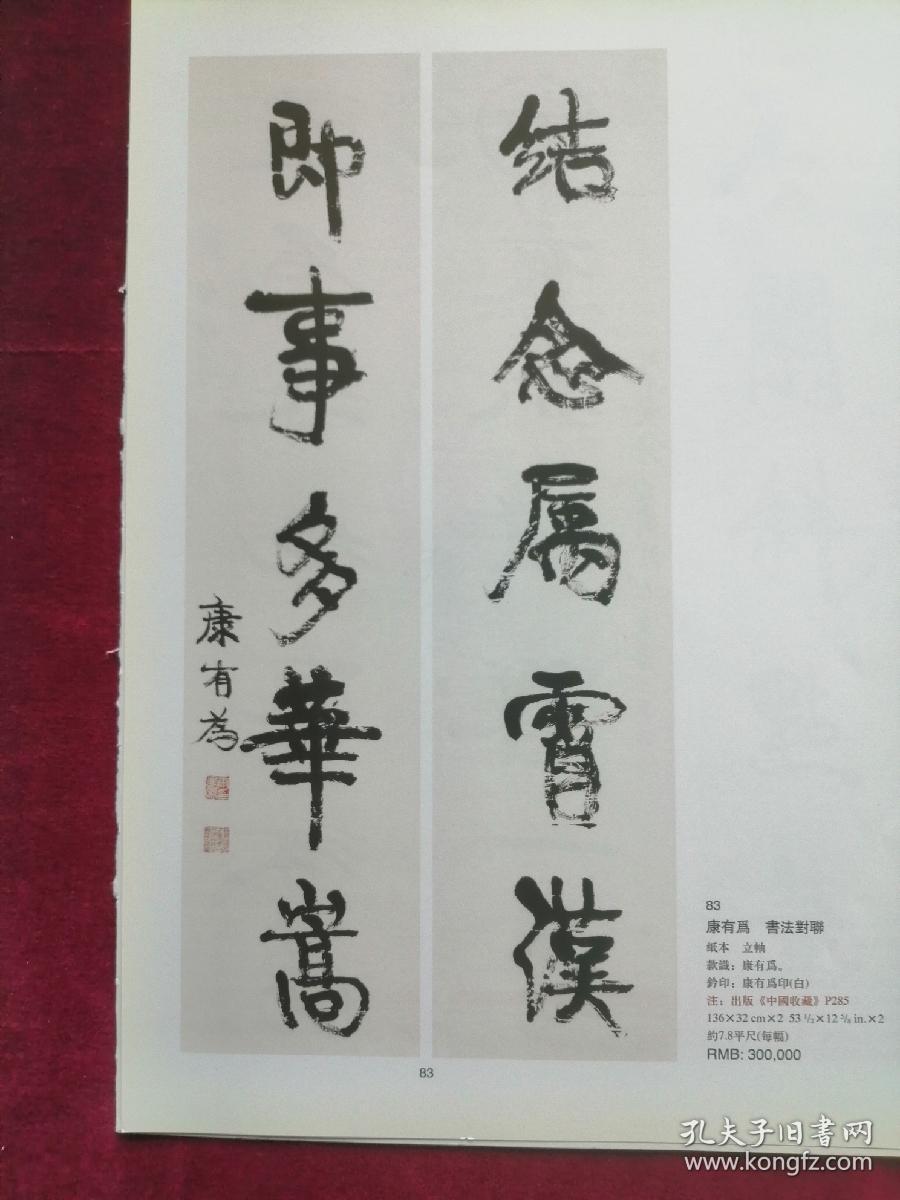 结念属霄漢
即事多華嵩
康有為
83
康有爲 書法對聯
紙本 立軸
款識：康有爲。
鈐印：康有爲印(白)
注：出版《中國收藏》P285
136×32 cm×2 53 1/2×12 5/8 in.×2
約7.8平尺(每幅)
RMB: 300,000
83
孔夫子旧书网
www.kongfz.com